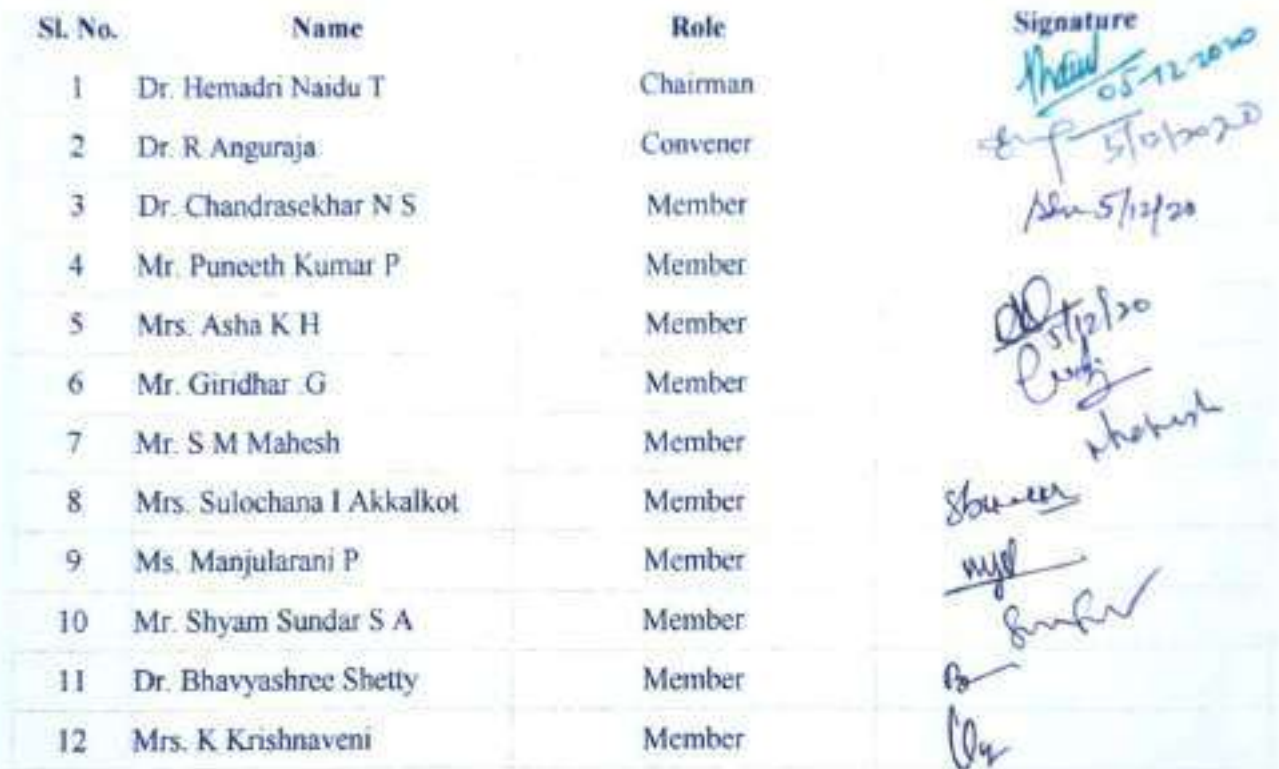 Sl. No. Name Role Signature
1 Dr. Hemadri Naidu T Chairman 05-12-2020
2 Dr. R Anguraja Convener 5/12/2020
3 Dr. Chandrasekhar N S Member 5/12/20
4 Mr. Puneeth Kumar P Member
5 Mrs. Asha K H Member 5/12/20
6 Mr. Giridhar .G Member
7 Mr. S M Mahesh Member Mahesh
8 Mrs. Sulochana I Akkalkot Member
9 Ms. Manjularani P Member
10 Mr. Shyam Sundar S A Member
11 Dr. Bhavyashree Shetty Member
12 Mrs. K Krishnaveni Member